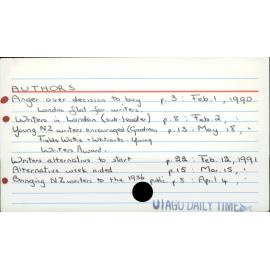 AUTHORS
Anger over decision to buy p. 3 : Feb. 1, 1990
London flat for writers.
Writers in London (sub-leader) p. 8 : Feb. 2, "
Young NZ writers encouraged (Goodman p. 13 : May 18, "
Fielder Wattie + Whitcoulls Young
Writers Award.
Writers alternative to start p. 22 : Feb. 12, 1991
Alternative week aided p. 15 : Mar. 15, "
Bringing NZ writers to the 1936 public p. 8 : Apr. 4, "
OTAGO DAILY TIMES